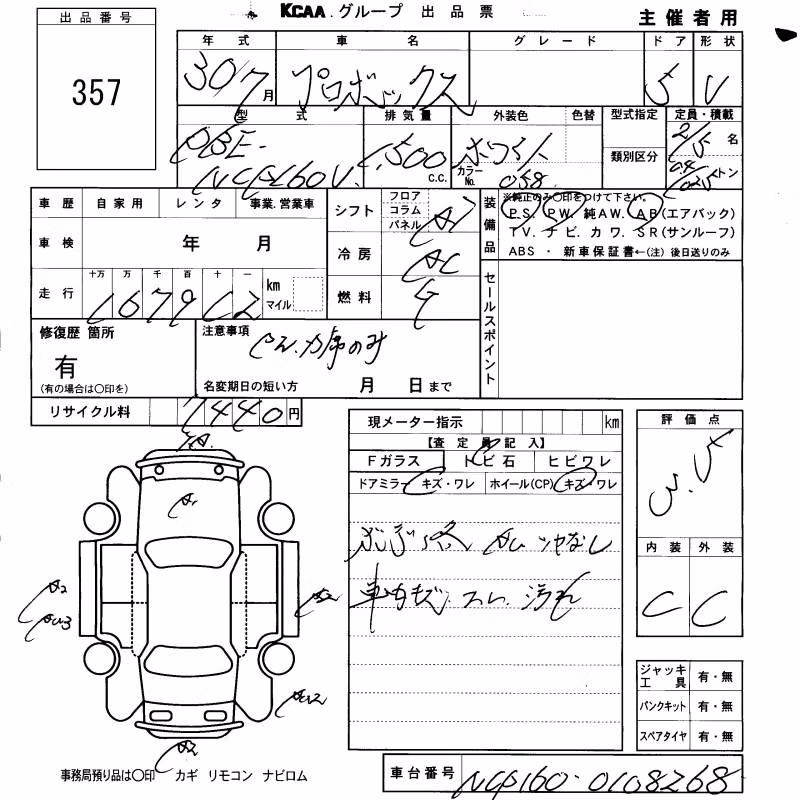 KCAA.グループ 出品票
主催者用
出品番号
357
年式 車名 グレード ドア 形状
30/7月 プロボックス 5 V
型式 排気量 外装色 色替 型式指定 定員・積載
DBE- 1,500 c.c. ホワイト 類別区分 2/5 名
NCP160V カラーNo. 058 トン
車歴 自家用 レンタ 事業.営業車
車検 年 月
走行 十万 万 千 百 十 一 km マイル
167912
シフト フロア コラム パネル AT
冷房 AC
燃料 G
装備品 ※純正のみ〇印をつけて下さい。
P.S. P.W. 純AW. AB(エアバック)
TV. ナビ. カワ. SR(サンルーフ)
ABS ・ 新車保証書←(注) 後日送りのみ
セールスポイント
修復歴 箇所
有
(有の場合は〇印を)
注意事項
名変期日の短い方 月 日まで
リサイクル料 7440円
現メーター指示 km
【査定員記入】
Fガラス トビ石 ヒビワレ
ドアミラー キズ・ワレ ホイール(CP) キズ・ワレ
車内キズ.スレ.汚れ
評価点
3.5
内装 外装
C C
A1
A2
ジャッキ工具 有・無
パンクキット 有・無
スペアタイヤ 有・無
事務局預り品は〇印 カギ リモコン ナビロム
車台番号 NCP160-0108268